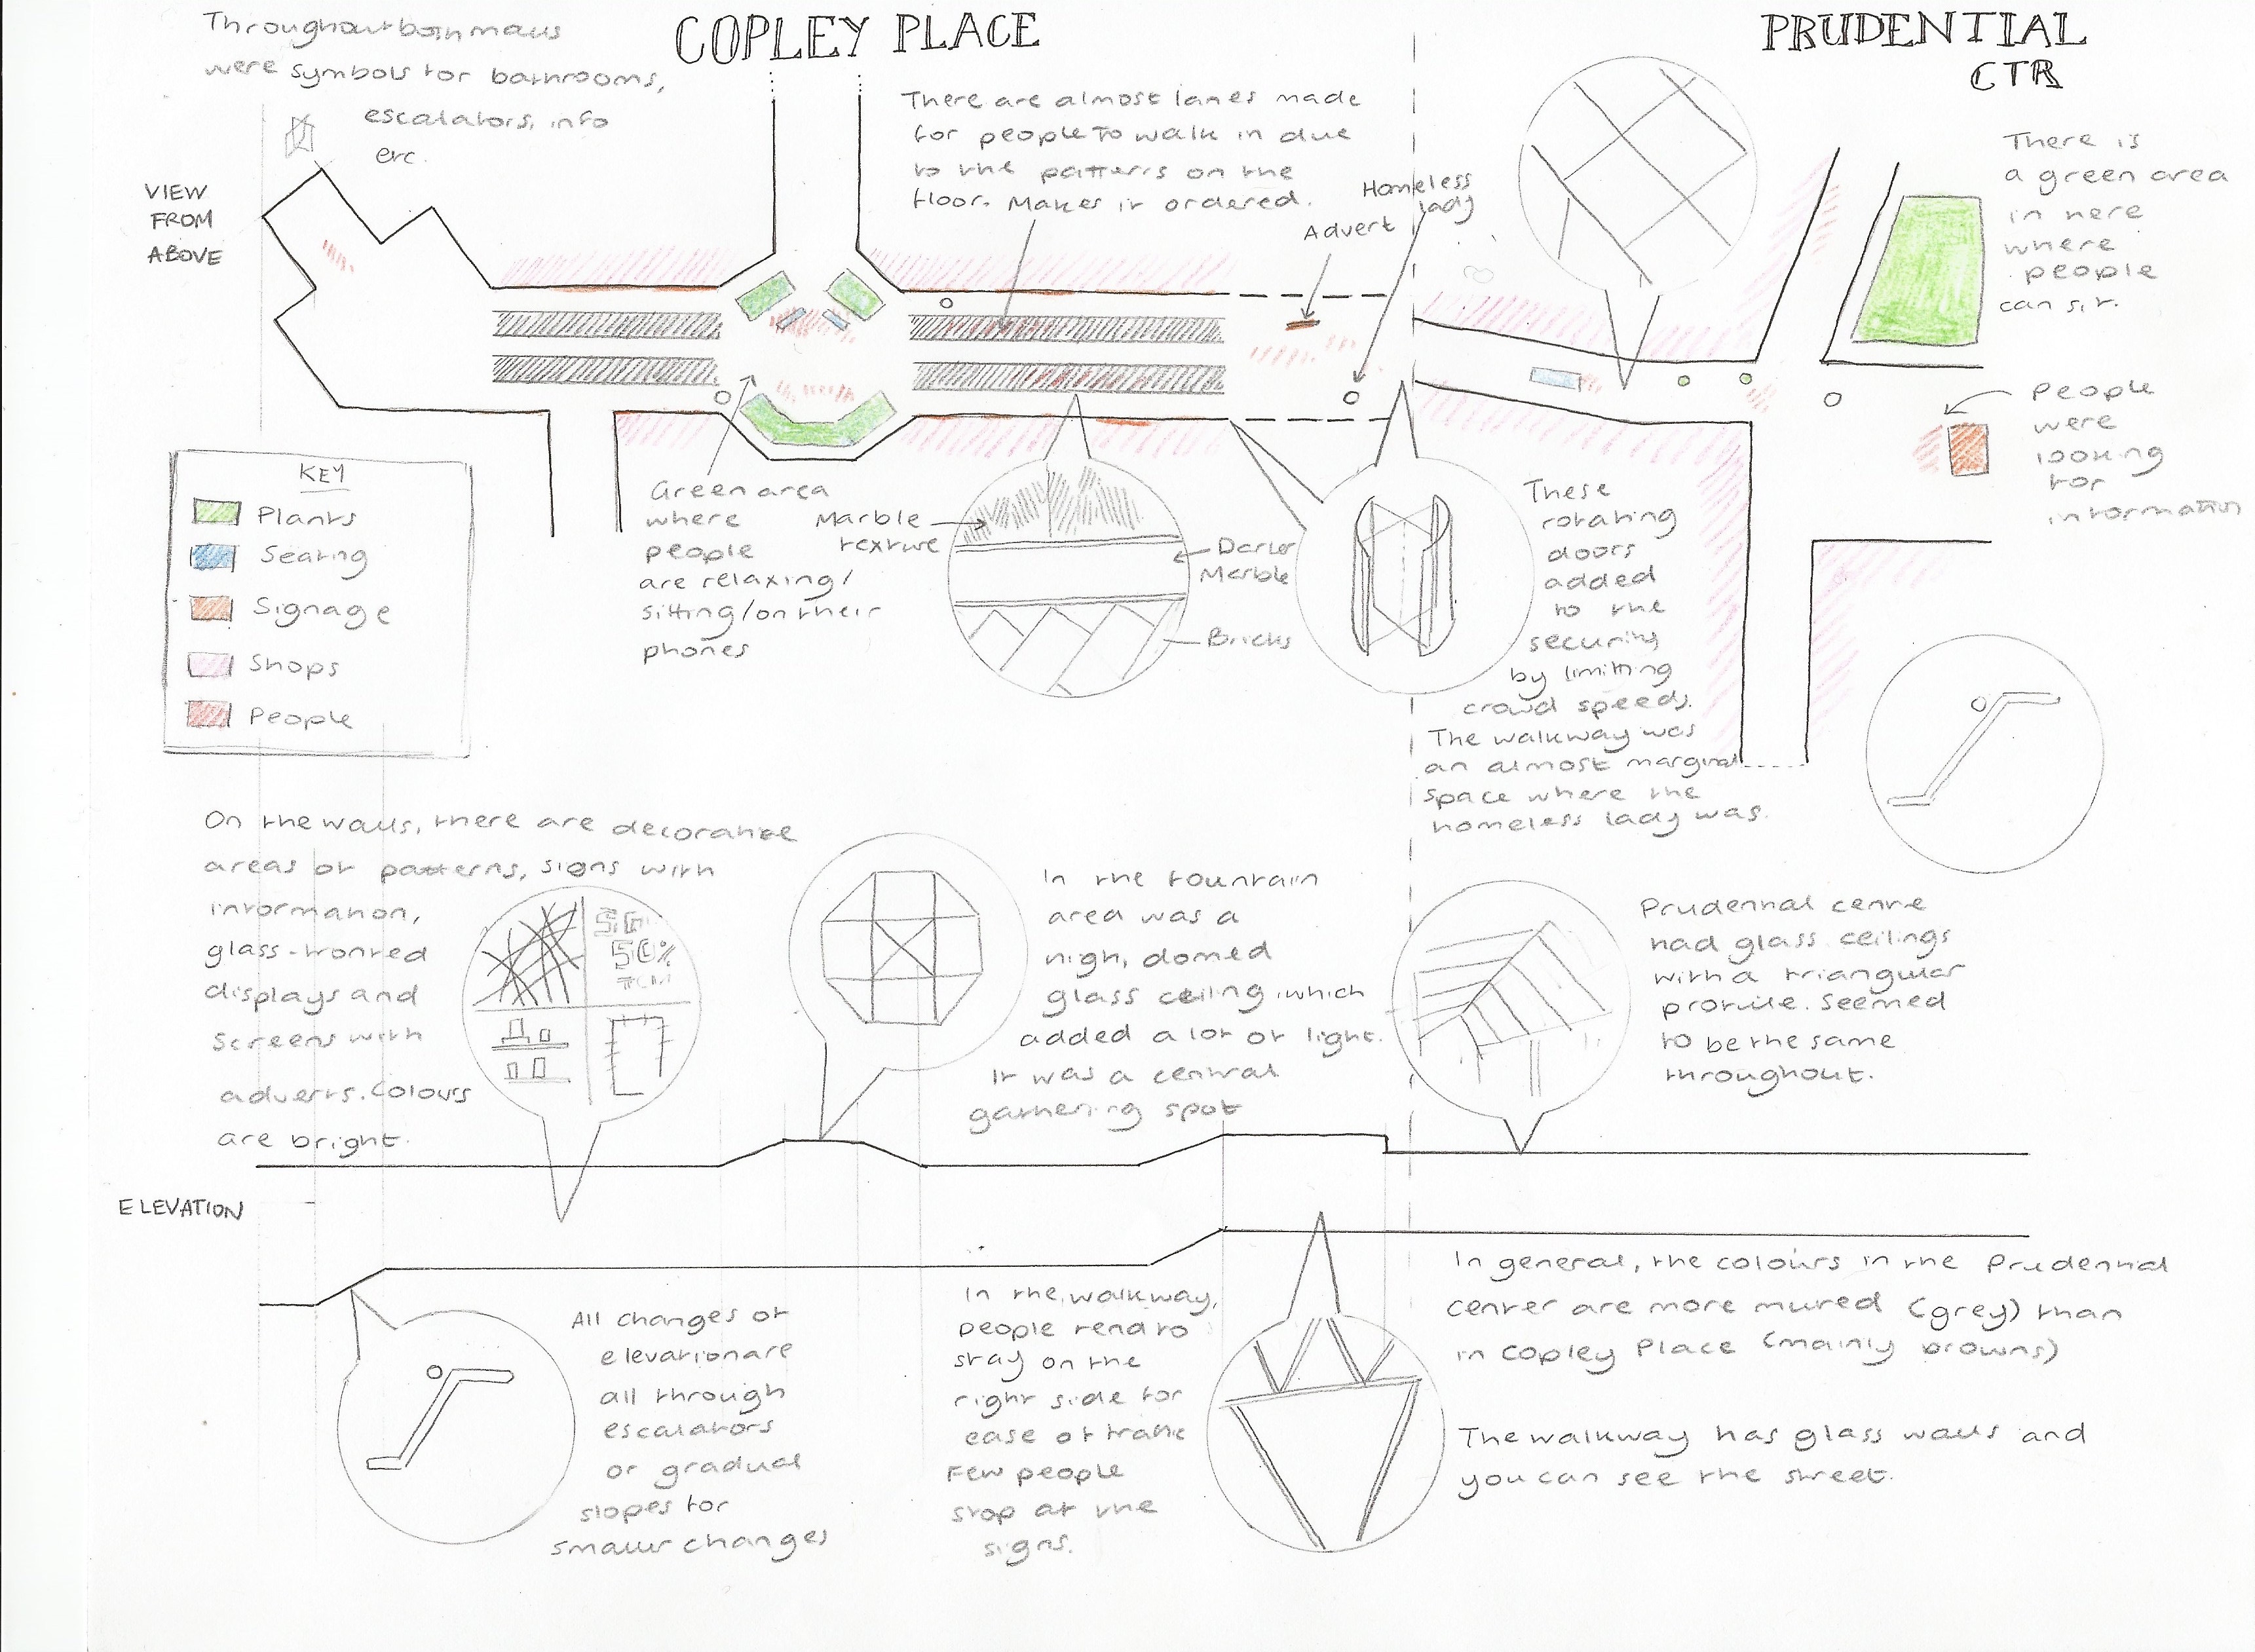 Throughout both malls
were symbols for bathrooms,
escalators, info
etc.
COPLEY PLACE
PRUDENTIAL
CTR
VIEW
FROM
ABOVE
There are almost lanes made
for people to walk in due
to the patterns on the
floor. Makes it ordered.
Advert
Homeless
lady
There is
a green area
in here
where
people
can sit.
People
were
looking
for
information
KEY
Plants
Seating
Signage
Shops
People
Green area
where
people
are relaxing/
sitting/on their
phones
Marble
texture
Darker
Marble
Bricks
These
rotating
doors
added
to the
security
by limitting
crowd speeds.
The walkway was
an almost marginal
space where the
homeless lady was.
On the walls, there are decorative
areas of patterns, signs with
information,
glass-fronted
displays and
screens with
adverts. Colours
are bright.
50%
In the fountain
area was a
high, domed
glass ceiling which
added a lot of light.
It was a central
gathering spot
Prudential centre
had glass ceilings
with a triangular
profile. Seemed
to be the same
throughout.
ELEVATION
All changes of
elevation are
all through
escalators
or gradual
slopes for
smaller changes
In the walkway,
people tend to
stay on the
right side for
ease of traffic
Few people
stop at the
signs.
In general, the colours in the Prudential
center are more muted (grey) than
in Copley Place (mainly browns)
The walkway has glass walls and
you can see the street.